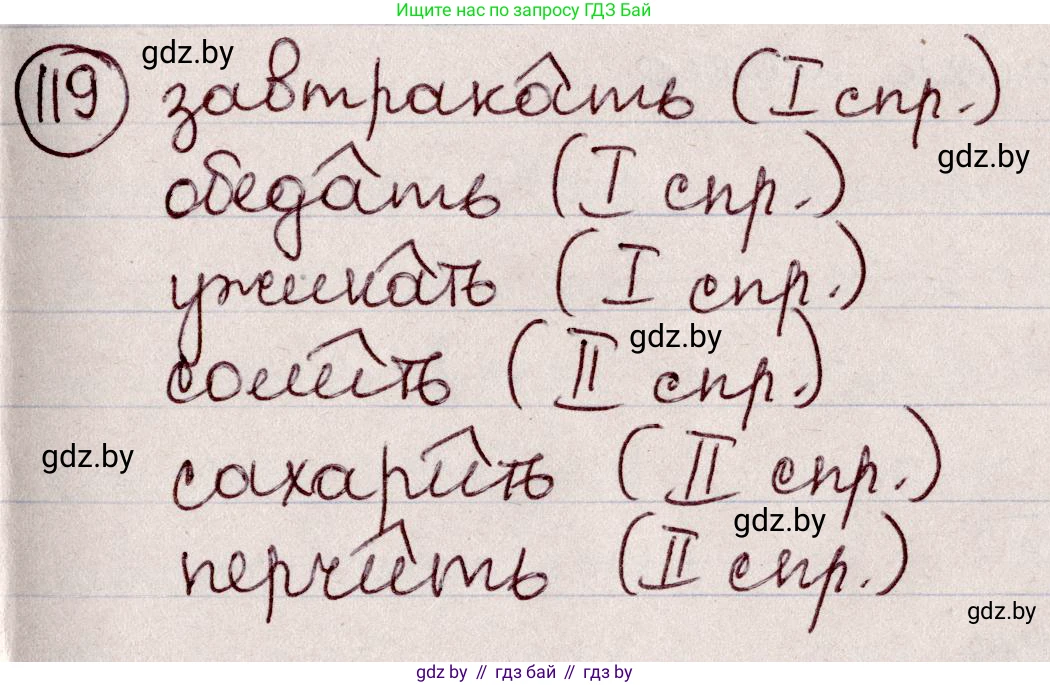 Ищите нас по запросу ГДЗ Бай
gdz.by
119 завтракать (I спр.)
gdz.by
обедать (I спр.)
ужинать (I спр.)
gdz.by
солить (II спр.)
gdz.by
сахарить (II спр.)
gdz.by
перчить (II спр.)
gdz.by
gdz.by // гдз бай // гдз by